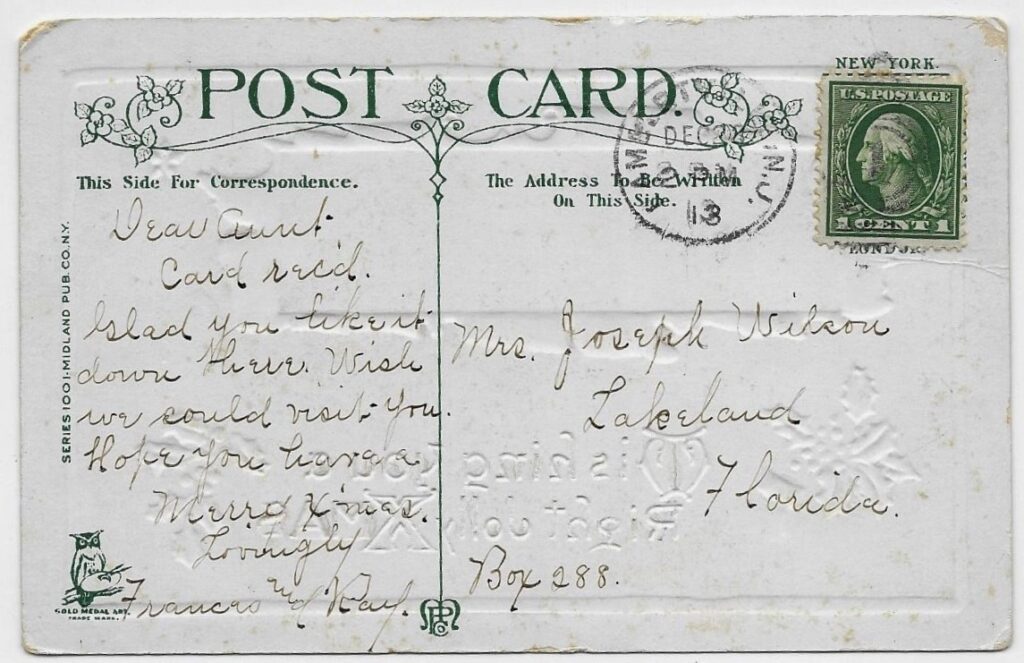 POST CARD.
NEW YORK.
U.S. POSTAGE
1 CENT 1
LONDON
DEC 2
2 PM
13
N.J.
This Side For Correspondence.
The Address To Be Written
On This Side.
Dear Aunt
Card rec'd.
Glad you like it
down there. Wish
we could visit you.
Hope you have a
Merry X'mas.
Lovingly
Frances and Ray.
Mrs. Joseph Wilson
Lakeland
Florida.
Box 288.
SERIES 1001-MIDLAND PUB. CO. N.Y.
GOLD MEDAL ART
TRADE MARK.